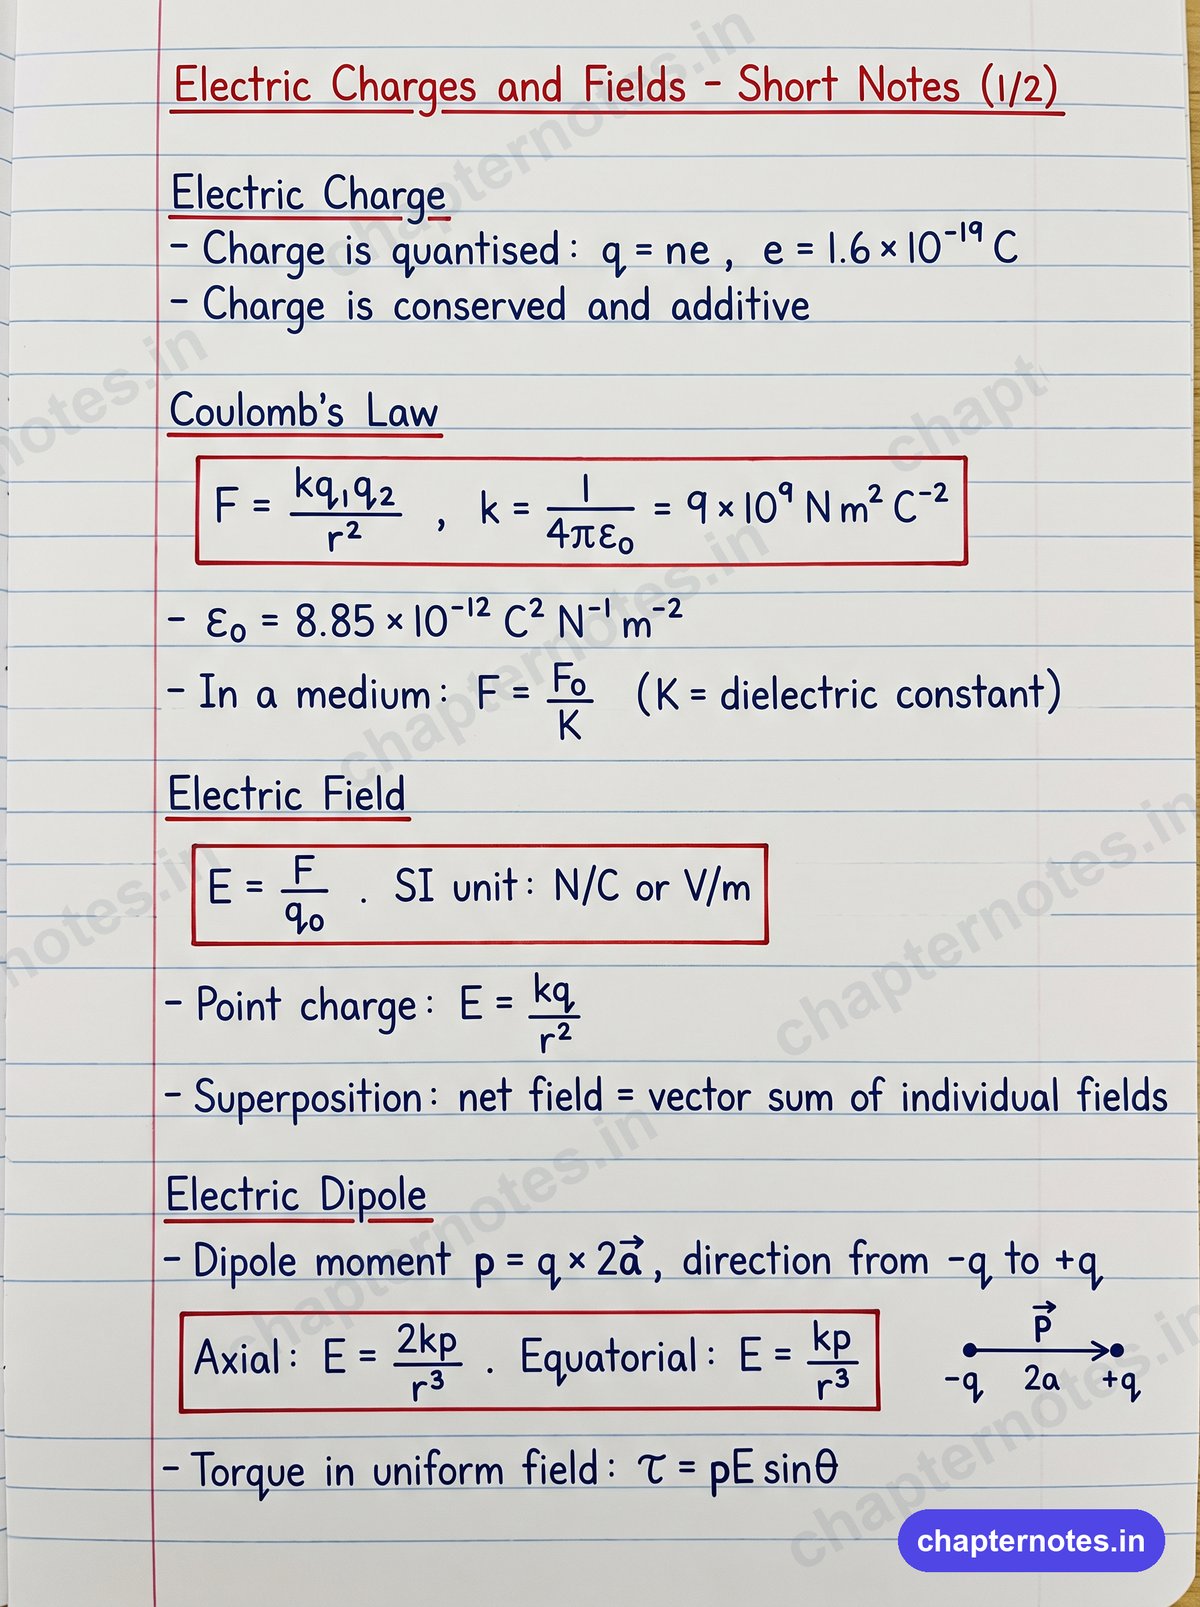 Electric Charges and Fields - Short Notes (1/2)
Electric Charge
- Charge is quantised: q = ne, e = 1.6 × 10⁻¹⁹ C
- Charge is conserved and additive
Coulomb's Law
F = kq₁q₂/r², k = 1/4πε₀ = 9 × 10⁹ N m² C⁻²
- ε₀ = 8.85 × 10⁻¹² C² N⁻¹ m⁻²
- In a medium: F = F₀/K (K = dielectric constant)
Electric Field
E = F/q₀ . SI unit: N/C or V/m
- Point charge: E = kq/r²
- Superposition: net field = vector sum of individual fields
Electric Dipole
- Dipole moment p = q × 2a⃗, direction from -q to +q
Axial: E = 2kp/r³ . Equatorial: E = kp/r³
p⃗
-q 2a +q
- Torque in uniform field: τ = pE sinθ
chapternotes.in